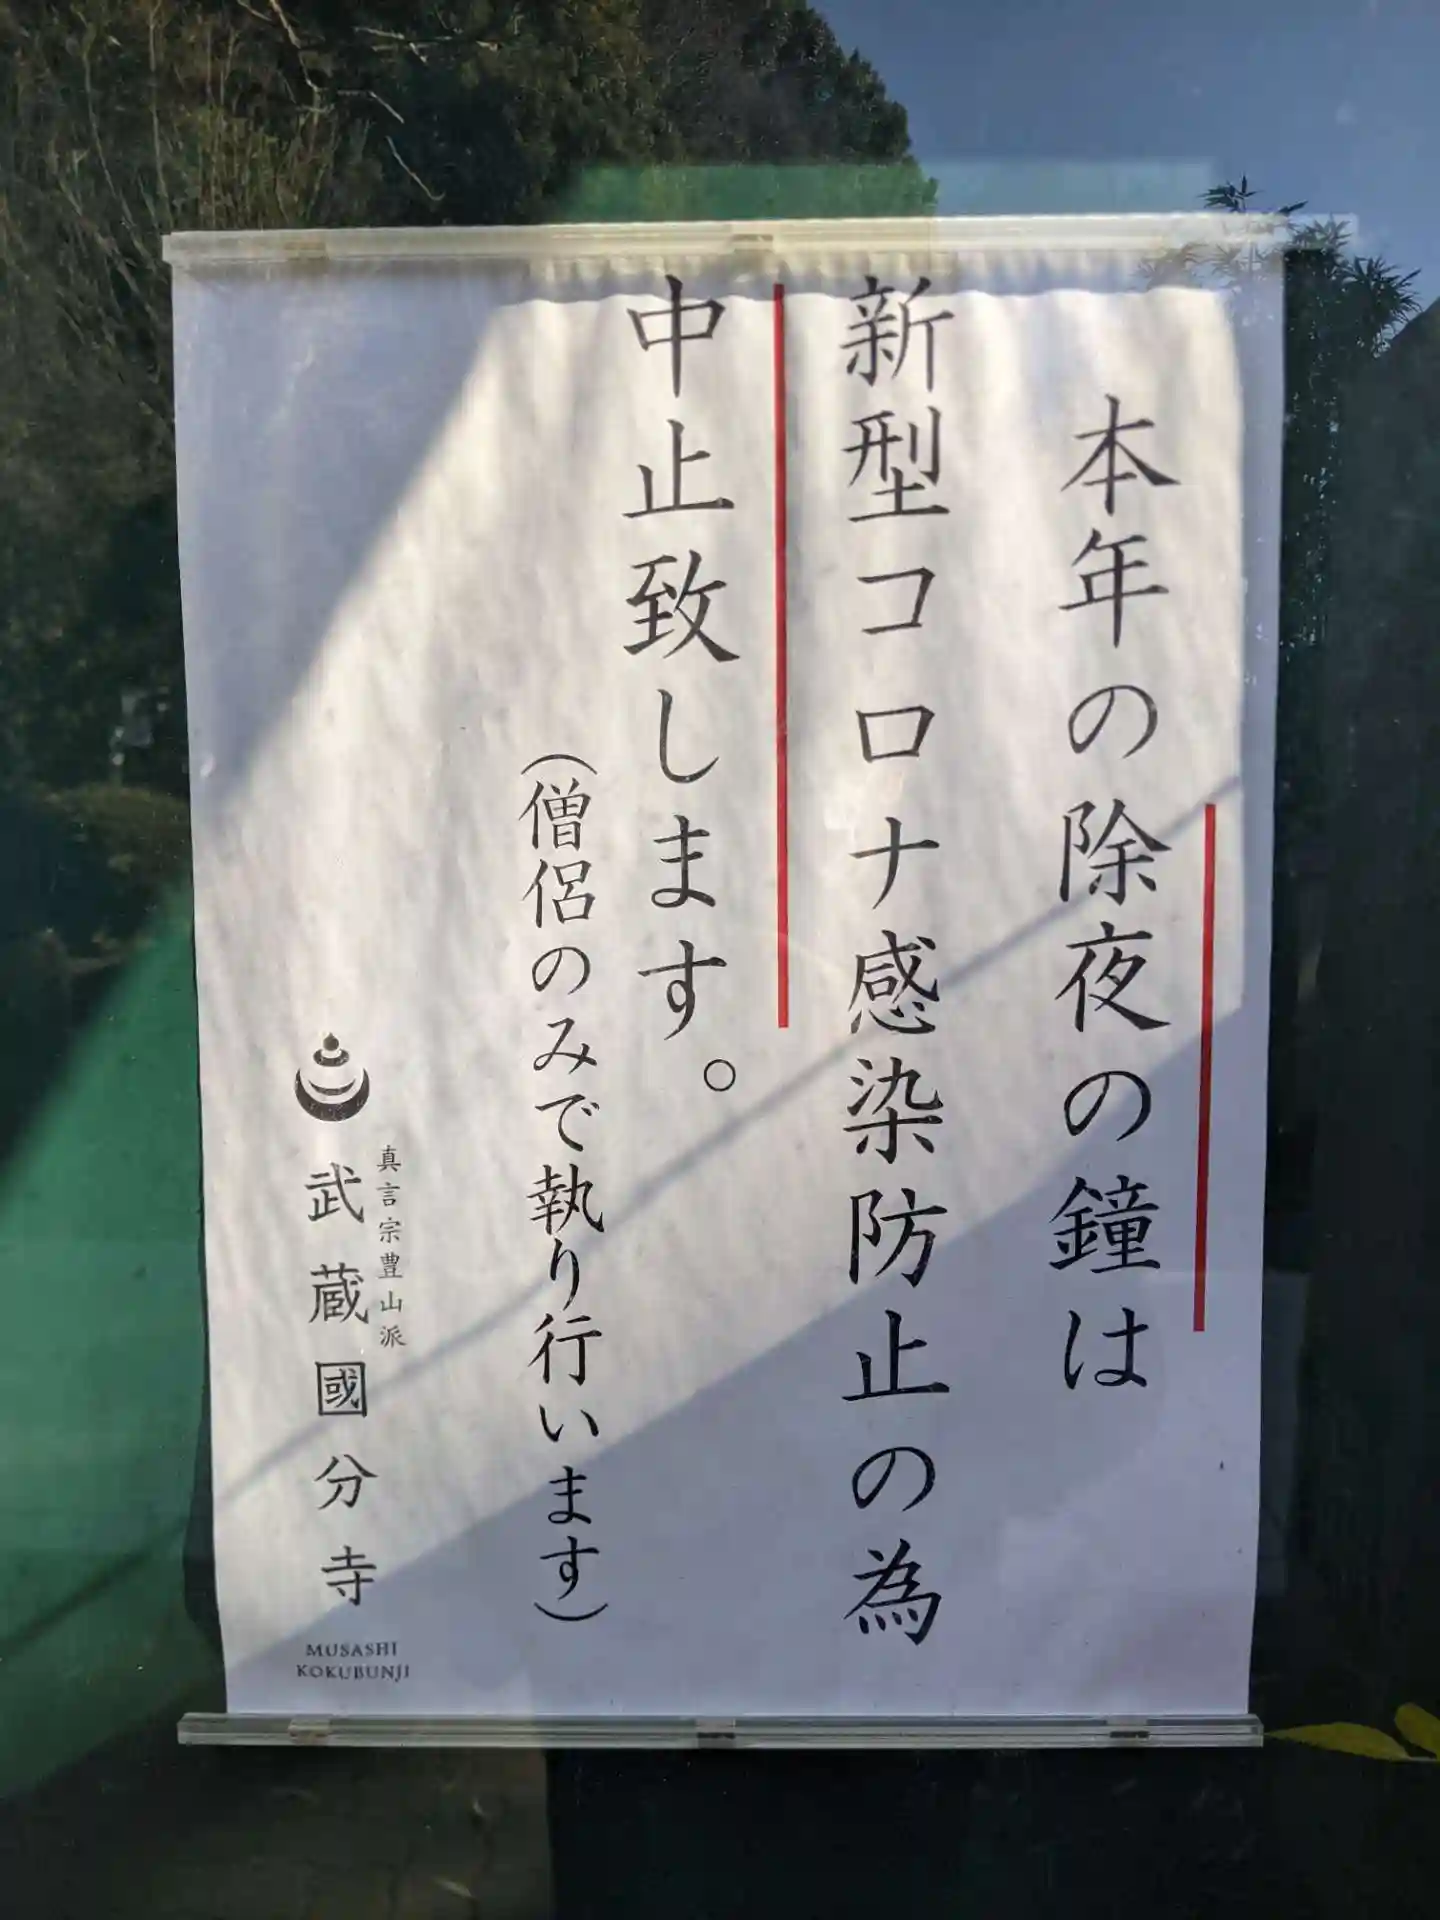 本年の除夜の鐘は
新型コロナ感染防止の為
中止致します。
（僧侶のみで執り行います）
真言宗豊山派
武蔵國分寺
MUSASHI
KOKUBUNJI